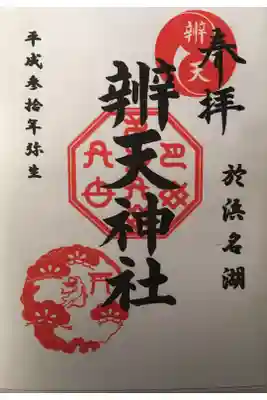 奉拝
辨天
於浜名湖
辨天神社
平成参拾年弥生